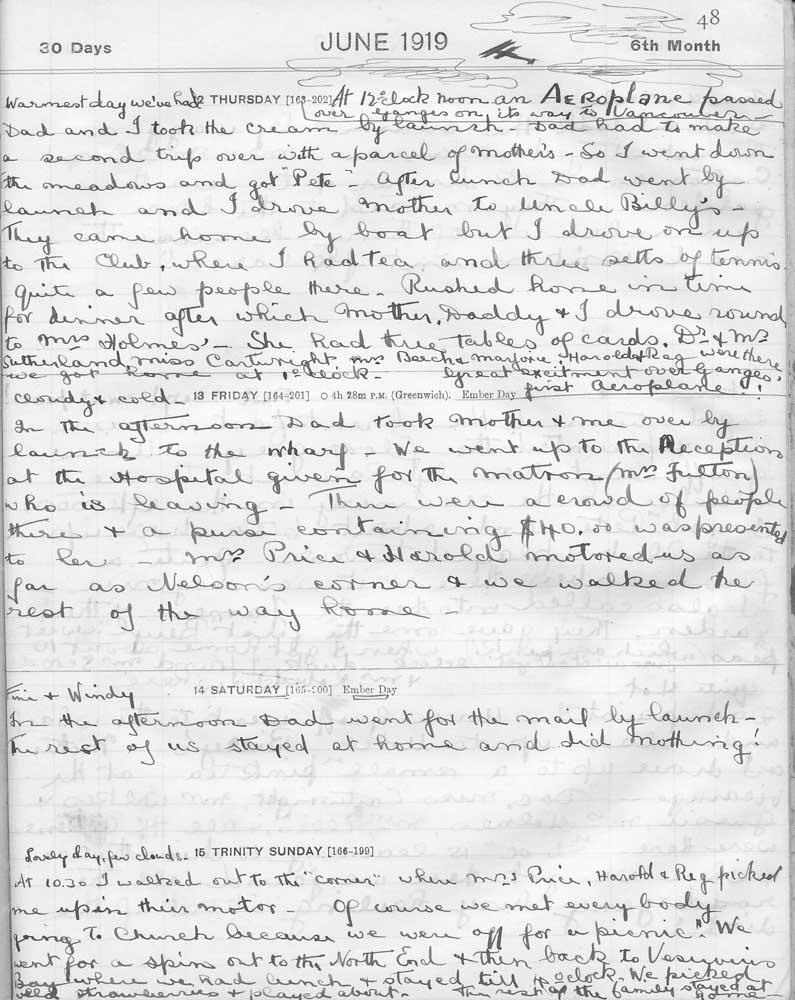 48
30 Days JUNE 1919 6th Month
Warmest day we've had 12 THURSDAY [163-202] At 12 o'clock noon an AERoplane passed
over Ganges on its way to Vancouver -
Dad and I took the cream by launch - Dad had to make
a second trip over with a parcel of mother's - So I went down
the meadows and got "Pete" - After lunch Dad went by
launch and I drove Mother to Uncle Billy's -
They came home by boat but I drove on up
to the Club, where I had tea and three setts of tennis.
Quite a few people there. Rushed home in time
for dinner after which Mother, Daddy & I drove round
to Mrs Holmes' - She had three tables of cards. Dr & Mrs
Sutherland, Miss Cartwright, Mrs Beech & Marjorie, Harold & Reg were there
we got home at 1 o'clock - Great excitment over Ganges'
first Aeroplane!!
Cloudy & cold - 13 FRIDAY [164-201] O 4h 28m P.M. (Greenwich). Ember Day
In the afternoon Dad took Mother & me over by
launch to the wharf - We went up to the Reception
at the Hospital given for the Matron (Mrs Fulton)
who is leaving - There were a crowd of people
there & a purse containing $40.00 was presented
to her - Mrs Price & Harold motored us as
far as Nelson's corner & we walked the
rest of the way home -
Fine & Windy 14 SATURDAY [165-200] Ember Day
In the afternoon Dad went for the mail by launch -
The rest of us stayed at home and did nothing!
Lovely day, few clouds - 15 TRINITY SUNDAY [166-199]
At 10.30 I walked out to the "corner" where Mrs Price, Harold & Reg picked
me up in their motor - Of course we met every body
going to Church because we were off for a picnic". We
went for a spin out to the North End & then back to Vesuvius
Bay where we had lunch & stayed till 4 o'clock. We picked
wild strawberries & played about - The rest of the family stayed at